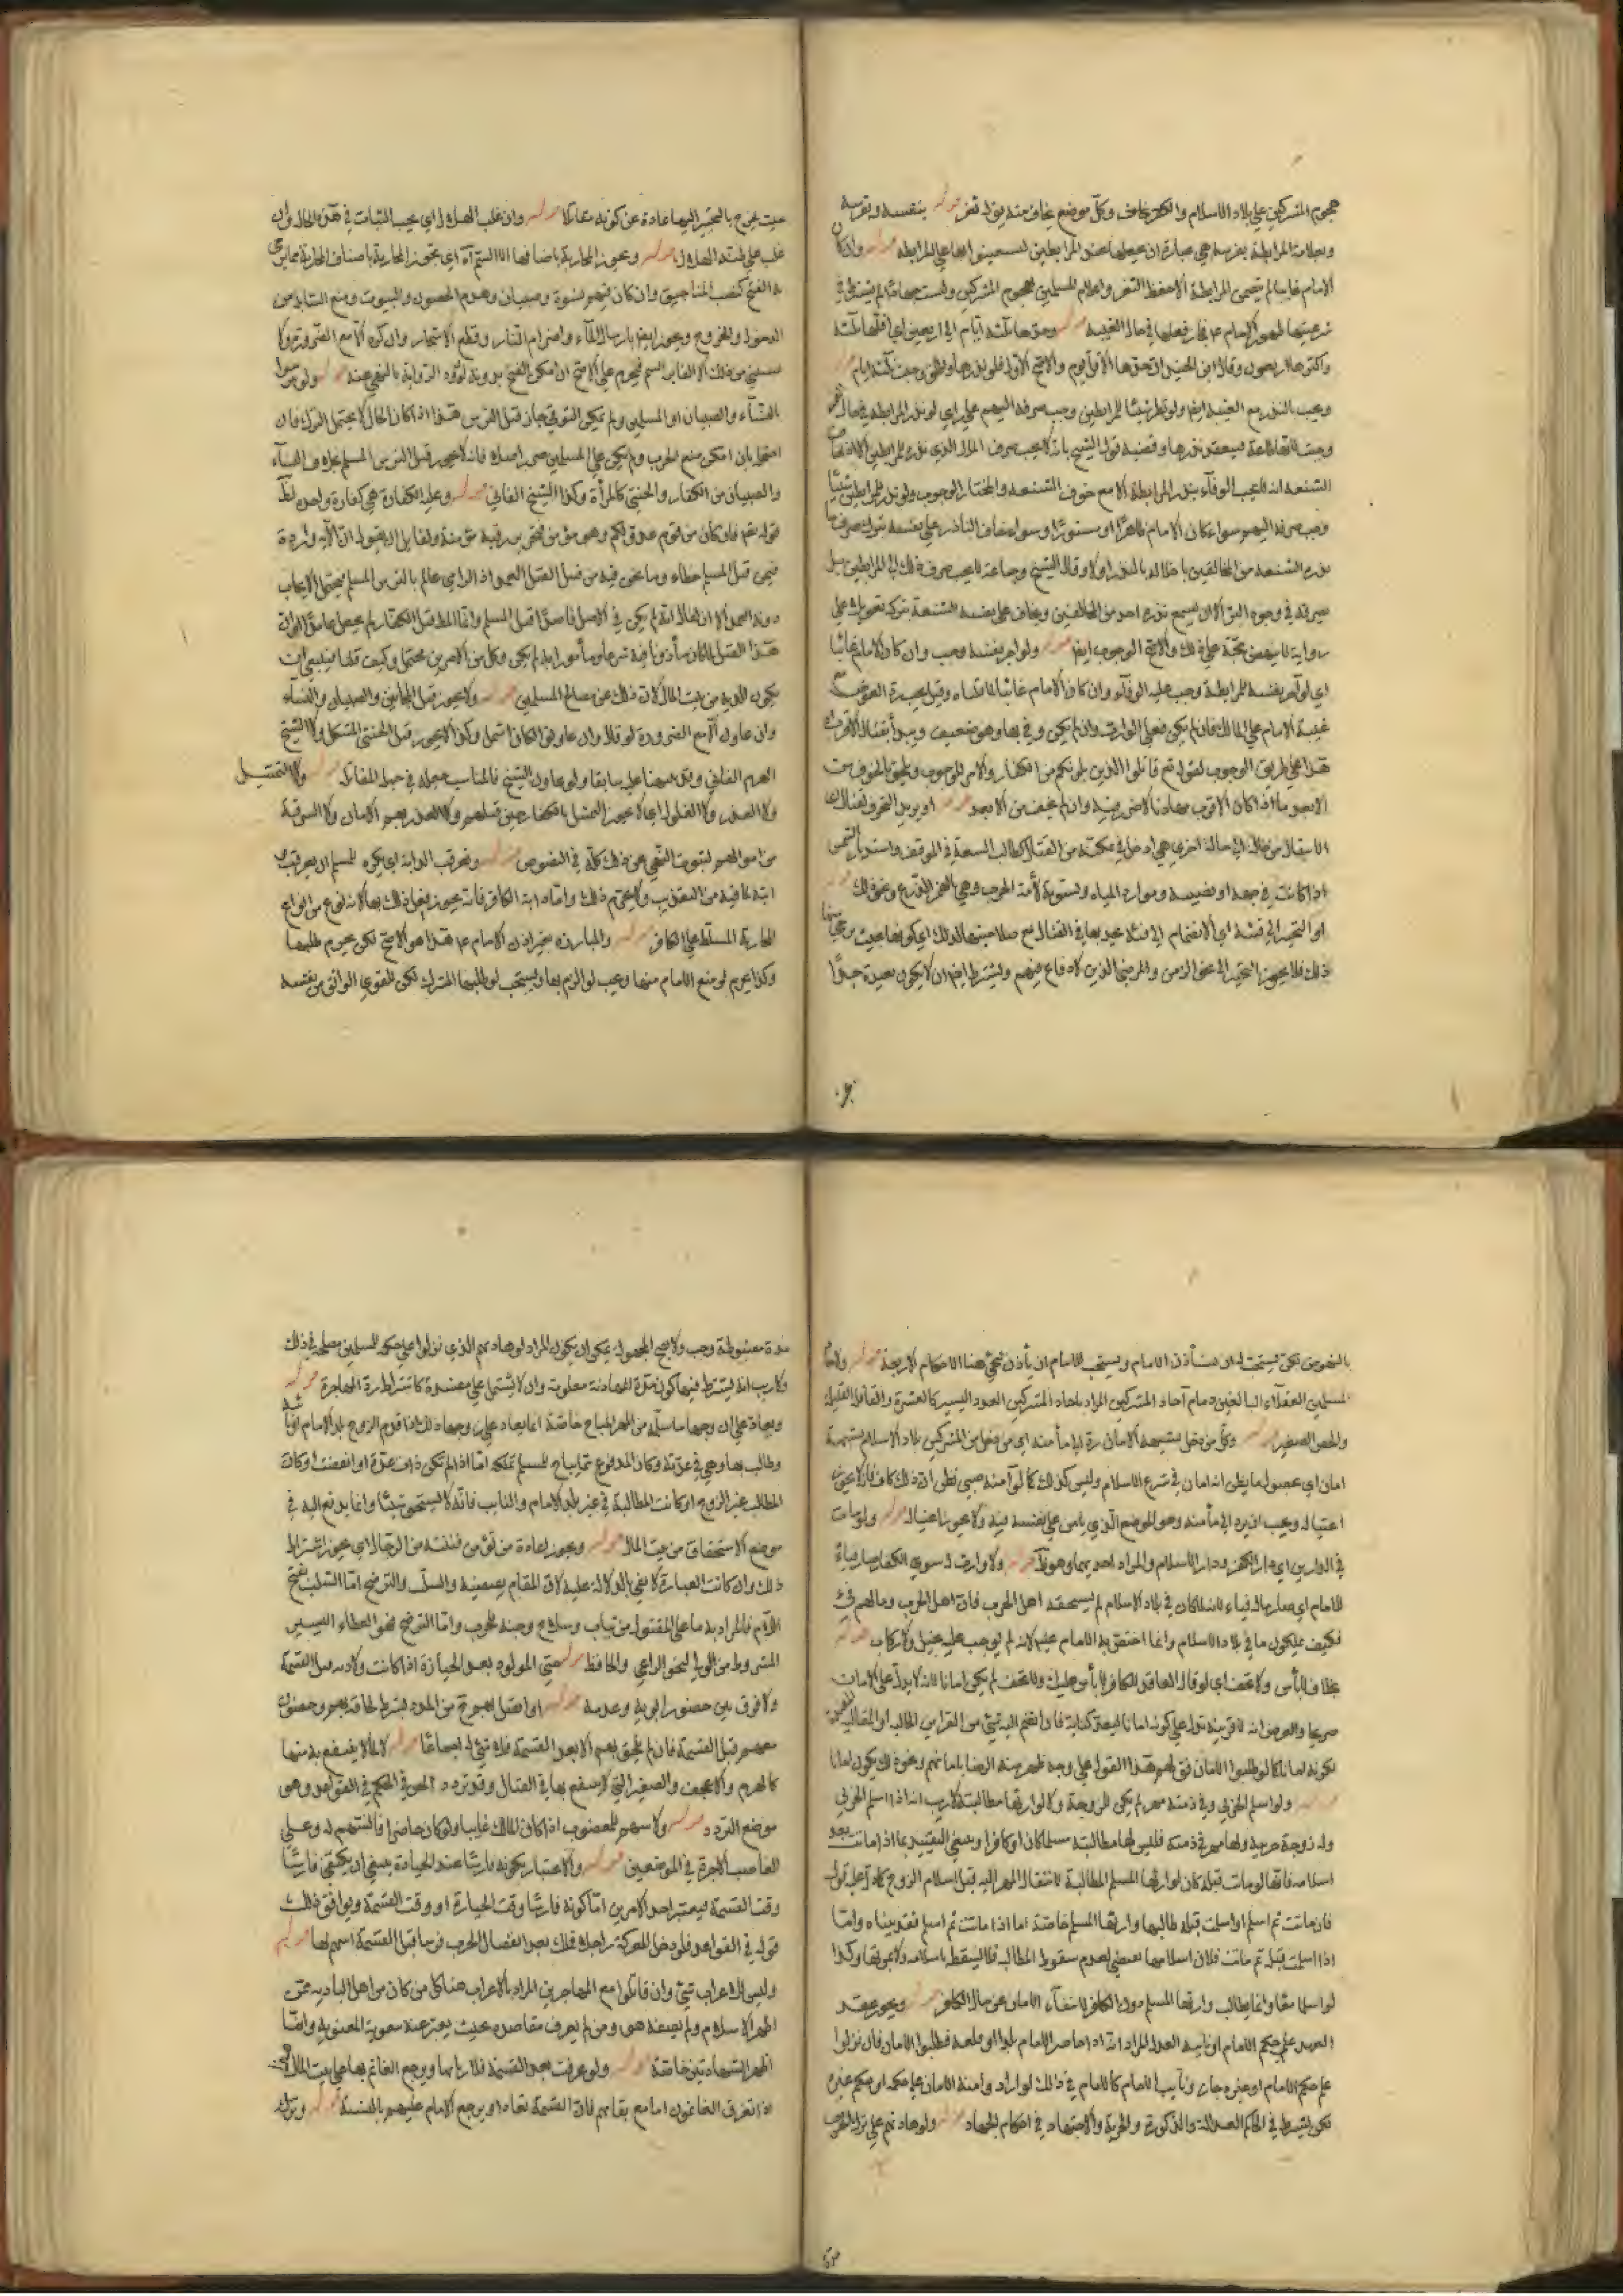 هجوم المشركين على بلاد الاسلام والكفر يخاف وكل موضع يخاف منه يق له ثغر قوله بنفسه وبفرسه
وبغلامه المرابطة بفرسه هي عبارة ان يجعلها عند المرابطين ليستعينوا بها على المرابطة قوله وان كان
الامام غائبا لم يتضمن المرابطة الا حفظ الثغر واعلام المسلمين بهجوم المشركين وليست جهادا لم يشترط في
شرعيتها ظهور الامام ع فجاز فعلها في حال الغيبة قوله وحدها ثلثة ايام الى اربعين اي اقلها ثلثة
واكثرها اربعون وقال ابن الجنيد ان حدها الاقل يوم والاصح الاول فلو نذرها واطلق وجبت ثلثة ايام قوله
ويجب بالنذر مع الغيبة ايضا ولو نذر شيئا للمرابطين وجب صرفه اليهم على راي لو نذر المرابطة في حال
وجبت لانها طاعة فينعقد نذرها وقضية قول الشيخ بانه لا يجب صرف المال الذي نذره للمرابطين الا مع خوف
الشنعة انه لا يجب الوفاء بنذر المرابطة الا مع خوف الشنعة والمختار الوجوب ولو نذر للمرابطين شيئا
وجب صرفه اليهم سواء كان الامام ظاهرا او مستورا وسواء خاف الناذر على نفسه بترك صرف ما
نذره الشنعة من المخالفين باخلاله بالنذر او لا وقال الشيخ وجماعة لا يجب صرف ذلك الى المرابطين بل
يصرفه في وجوه البر الا ان يسمع نذره احد من المخالفين ويخاف على نفسه الشنعة بتركه تعويلا على
رواية لا ينهض حجة على ذلك والاصح الوجوب ايضا قوله ولو اجر نفسه وجب وان كان الامام غائبا
اي لو آجر نفسه للمرابطة وجب عليه الوفاء وان كان الامام غائبا لما قلناه وقيل يجب رد العوض مع
غيبة الامام على المالك فان لم يكن فعلى الوارث وان لم يكن وفى بها وهو ضعيف ويبدأ بقتال الاقرب
هذا على طريق الوجوب لقوله تع قاتلوا الذين يلونكم من الكفار والامر للوجوب
الابعد ما اذا كان الاقرب مهادنا لامن ضرره وان لم يخف من الابعد قوله او يريد التحرف لقتال اي
الانتقال من حالة الى حالة اخرى هي ادخل في مكنته من القتال كطالب السعة في الموقف واستدبار الشمس
اذا كانت في جهة او تضيقه وموارد المياه وتسوية لأمة الحرب وهي بالهمز الدرع ونحو ذلك قوله
او التحيز الى فئة اي الانضمام الى فئة يستنجد بها في القتال مع صلاحيتها لذلك اي كونها بحيث يرجى
ذلك فلا يجوز التحيز الى نحو الزمن والمرضى الذين لا دفاع فيهم ويشترط ايضا ان لا يكون بعيدة جدا
حيث يخرج بالتحيز اليها عادة عن كونه مقاتلا قوله وان غلب الهلاك اي يجب الثبات في هذه الحال وان
غلب على ظنه الهلاك قوله ويجوز المحاربة باصنافها الا السم آه اي تجوز المحاربة باصناف المحاربة مما يرجى
به الفتح كنصب المناجيق وان كان فيهم نسوة وصبيان وهدم الحصون والبيوت ومنع السابلة من
الدخول والخروج ويجوز ايضا بارسال الماء واضرام النار وقطع الاشجار وان كره الا مع الضرورة ولا
يستثنى من ذلك الا القاء السم فيحرم على الاصح ان امكن الفتح بدونه لورود الرواية بالنهي عنه قوله ولو تترسوا
بالنساء والصبيان او المسلمين ولم يمكن التوقي جاز قتل الترس هذا اذا كان الحال لا يحتمل الترك فان
احتمله بان امكن منع الحرب ولم يكن على المسلمين ضرر اصلا فانه لا يجوز قتل الترس المسلم بخلاف النساء
والصبيان من الكفار والخنثى كالمرأة وكذا الشيخ الفاني قوله وعليه الكفارة هي كفارة واحدة لظاهر
قوله تع فان كان من قوم عدو لكم وهو مؤمن فتحرير رقبة مؤمنة ولقايل ان يقول ان الآية واردة
فيمن قتل المسلم خطاء وما نحن فيه من قبيل القتل العمد اذ الرامي عالم بالترس المسلم فيحتمل الايجاب
دية العمد الا ان يقال انه لم يكن في الاصل قاصدا قتل المسلم وانما المطلوب قتل الكفار
هذا القتل لما كان مأذونا فيه شرعا ومأمورا به لم يكن وكل من الامرين محتمل وكيف قلنا فينبغي ان
تكون الدية من بيت المال لان ذلك من مصالح المسلمين قوله ولا يجوز قتل المجانين والصبيان والنساء
وان عاون الا مع الضرورة لو قال وان عاونوا لكان اشمل وكذا لا يجوز قتل الخنثى المشكل ولا الشيخ
الهرم الفاني وقد نبهنا عليه سابقا ولو عاون الشيخ فالمناسب جعله في حيز المقاتلة قوله ولا التمثيل
ولا الغدر ولا الغلول اي لا يجوز التمثيل بالكفار حين قتلهم ولا الغدر بهم بعد الامان ولا السرقة
من اموالهم لثبوت النهي عن ذلك كله في النصوص قوله ويعرقب الدابة اي يكره للمسلم ان يعرقب
دابته لما فيه من التعذيب ولا يحرم ذلك واما دابة الكافر فانه يجوز فعل ذلك بها لانه نوع من انواع
المحاربة المسلط على الكافر قوله والمبارزة بغير اذن الامام ع هذا هو الاصح لكن يحرم طلبها
وكذا يحرم لو منع الامام منها ويجب لو الزم بها ويستحب لو طلبها المشرك لكن للقوي الواثق من نفسه
بالنهوض لكن يستحب له ان يستأذن الامام ويستحب للامام ان يأذن له فجرى هنا الاحكام الاربعة قوله ولآحاد
المسلمين العقلاء البالغين ذمام آحاد المشركين المراد باحاد المشركين العدد اليسير كالعشرة والقافلة القليلة
والحصن الصغير قوله وكل من دخل بشبهة الامان رد الى مأمنه اي من دخل من المشركين بلاد الاسلام بشبهة
امان اي بحصول ما يظن انه امان في شرع الاسلام وليس كذلك كما لو آمنه صبي فظن ان ذلك كاف فانه لا يجوز
اغتياله ويجب ان يرد الى مأمنه وهو الموضع الذي يامن على نفسه فيه ولا يجوز اغتياله قوله ولو مات
في الدارين اي دار الكفر ودار الاسلام والمراد احديهما وهو قوله ولا وارث له سوى الكفار صار فيئا
للامام اي صار ماله فيئا لانه لما كان في بلاد الاسلام لم يستحقه اهل الحرب فان اهل الحرب ومالهم فئ
فكيف يملكون ما في بلاد الاسلام وانما اختص به الامام عليه السلم لانه لم يوجف عليه بخيل ولا ركاب قوله
بخلاف لا بأس ولا تخف اي لو قال العاقد للكافر لا بأس عليك ولا تخف لم يكن امانا لانه لا يدل على الامان
صريحا والفرض انه لا قرينة تدل على كونه امانا فان انضم اليه شئ من القراين الحالية او المقالية
لكونه امانا كما لو طلبوا الامان فق لهم هذا القول على وجه ظهر منه الرضا بامانهم ونحو ذلك يكون امانا
قوله ولو اسلم الحربي وفي ذمته مهر لم يكن للزوجة ولا لوارثها مطالبته لا ريب انه اذا اسلم الحربي
وله زوجة حربية ولها مهر في ذمته فليس لها مطالبته مسلما كان او كافرا وينبغي التقييد بما اذا ماتت بعد
اسلامه فانها لو ماتت قبله كان لوارثها المسلم المطالبة لانتقال المهر اليه قبل اسلام الزوج كما دل عليه قوله
فان ماتت ثم اسلم او اسلمت قبله طالبها وارثها المسلم خاصة اما اذا ماتت ثم اسلم فقد بيناه واما
اذا اسلمت قبله ثم ماتت فلان اسلامها مقتضي لعدم سقوط المطالبة فلا يسقط باسلامه ولا بموتها وكذا
لو اسلما معا وانما يطالب وارثها المسلم دون الكافر لانتفاء الامان عن مال الكافر قوله ويجوز عقد
العهد على حكم الامام او نايبه العدل المراد انه اذا حاصر الامام بلدا او قلعة فطلبوا الامان فان نزلوا
على حكم الامام او غيره جاز ونايب الامام كالامام في ذلك لو اراد وامنه الامان على حكمه او حكم غيره
لكن يشترط في الحاكم العدالة والذكورة والحرية والاجتهاد في احكام الجهاد قوله ولو هادنهم على ترك الحرب
مدة مضبوطة وجب ولا يصح المجهول يمكن ان يكون المراد لو هادنهم الذي نزلوا على حكمه للمسلمين مصلحة في ذلك
ولا ريب انه يشترط فيها كون مدة المهادنة معلومة وان لا يشتمل على مفسدة كاشتراط رد المهاجرة قوله
ويعاد على زوجها ما سلمه من المهر المباح خاصة انما يعاد على زوجها ذلك اذا قدم الزوج بلد الامام او نائبه
وطالب بها وهي في عدته وكان المدفوع مما يباح للمسلم تملكه اما اذا لم تكن ذات عدة او انقضت او كان
المطالب غير الزوج او كانت المطالبة في غير بلد الامام والنايب فانه لا يستحق شيئا وانما يدفع اليه في
موضع الاستحقاق من بيت المال قوله ويجوز اعادة من تؤمن فتنته من الرجال اي يجوز اشتراط
ذلك وان كانت العبارة لا تفي بالدلالة عليه لان المقام يقتضيه والسلب والرضخ اما السلب بفتح
اللام فالمراد به ما على المقتول من ثياب وسلاح وجنة للحرب واما الرضخ فهو العطاء اليسير
المشروط من الوالي لنحو الراعي والحافظ قوله حتى المولود بعد الحيازة اذا كانت ولادته قبل القسمة
ولا فرق بين حضور ابويه وعدمه قوله او اتصل بهم حيّ من المدد بشرط لحاقه بهم وحضوره
معهم قبل القسمة فان لم يلحق بهم الا بعد القسمة فلا شئ له اجماعا قوله لا ما لا ينتفع به منها
كالهرم والاعجف والصغير التي لا ينتفع بها في القتال وقد تردد المص في الحكم في القواعد وهو
موضع التردد قوله ولا سهم للمغصوب اذا كان المالك غايبا ولو كان حاضرا فالسهم له وعلى
الغاصب الاجرة في الموضعين قوله والاعتبار بكونه فارسا عند الحيازة ينبغي ان يكتفى فارسا
وقت القسمة فيعتبر احد الامرين اما كونه فارسا وقت الحيازة او وقت القسمة ويوافق ذلك
قوله في القواعد فلو دخل المعركة راجلا فملك بعد انفصال الحرب فرسا قبل القسمة اسهم لها قوله
وليس للاعراب شئ وان قاتلوا مع المهاجرين المراد بالاعراب هنا كل من كان من اهل البادية ممن
اظهر الاسلام ولم يصفه هو ومن لم يعرف مقاصده بحيث يعبر عنه بنعوته المعنوية وانما
اظهر الشهادتين خاصة قوله ولو عرفت بعد القسمة فلاربابها ويرجع الغانم بها على بيت المال
اذا تفرق الغانمون اما مع بقائهم فان القسمة تعاد او يرجع الامام عليهم بالنسبة قوله وترك